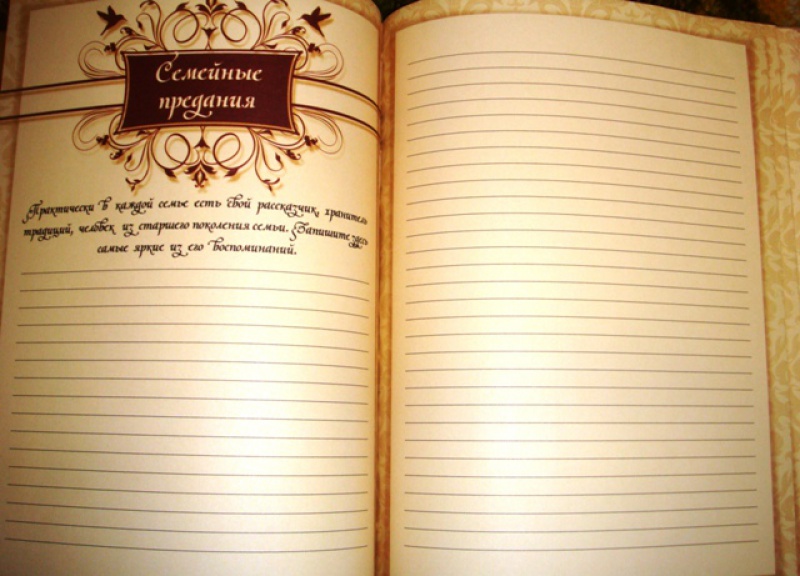 Семейные
предания
Практически в каждой семье есть свой рассказчик, хранитель
традиций, человек из старшего поколения семьи. Запишите здесь
самые яркие из его воспоминаний.